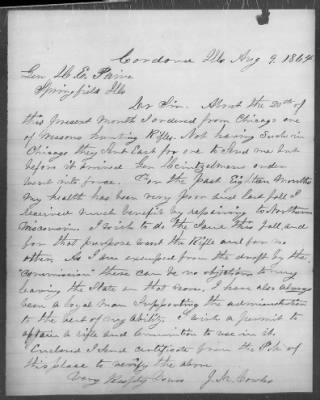 Cordova Ills Aug 9. 1864
Gen H. E. Paine
Springfield Ills
Dr Sir. About the 20th of
this present month I ordered from Chicago one
of Wessons hunting Rifles. Not having Such in
Chicago they Sent East for one to Send me but
before it arrived Gen Heintzelmans order
went into force. For the past Eighteen months
my health has been very poor and last fall I
received much benefit by repairing to Northern
Wisconsin. I wish to do the Same this fall, and
for that purpose want the Rifle and for no
other. As I am exempted from the draft by the
"Commission" there can be no objection to my
leaving the State on that score, I have also always
been a loyal man Supporting the administration
to the best of my ability. I wish a permit to
obtain a rifle and ammunition to use in it.
Enclosed I Send certificate from the P.M. of
this place to verify the above
Very Respty Yours J. H. Cowles